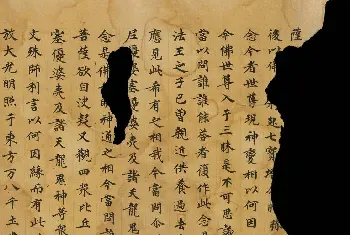 薩
後以佛起七寶塔
念今者世尊現神變相以何因
今佛世尊入于三昧是不可思議
當以問誰誰能答者復作此念
法王之子已曾親近供養過去
應見此希有之相我今當問
尼優婆婆夷及諸天龍鬼
念是佛明神通之相今當問
菩薩欲自決疑又觀四眾比丘
塞優婆夷及諸天龍鬼神等眾
文殊師利言以何因緣而有此
放大光明照于東方万八千土